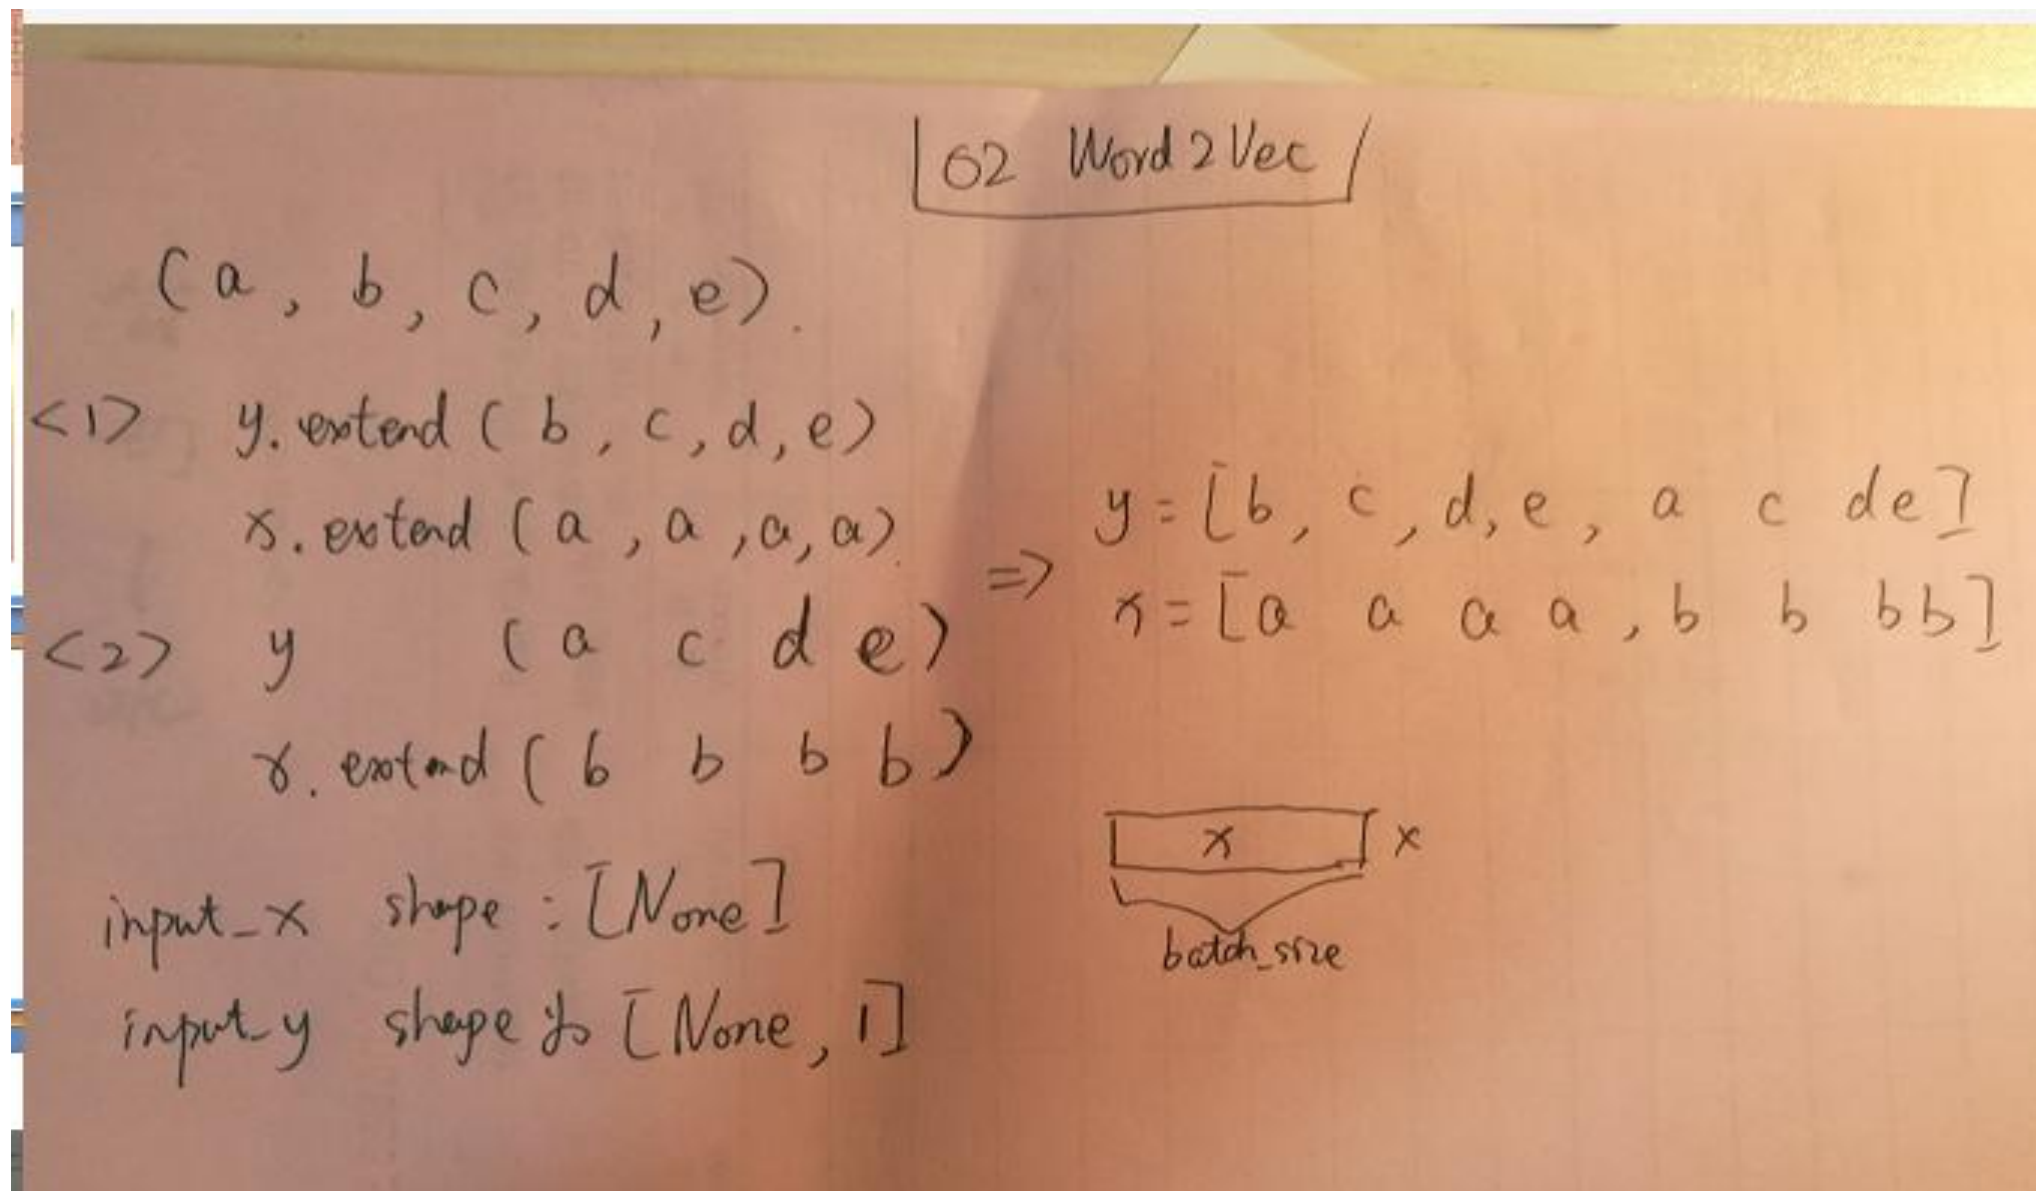 02 Word2Vec
(a, b, c, d, e).
<1> y.extend(b, c, d, e)
x.extend(a, a, a, a).
<2> y (a c d e)
x.extend(b b b b)
=>
y=[b, c, d, e, a c d e]
x=[a a a a, b b b b]
input_x shape:[None]
input_y shape为[None, 1]
x x
batch_size